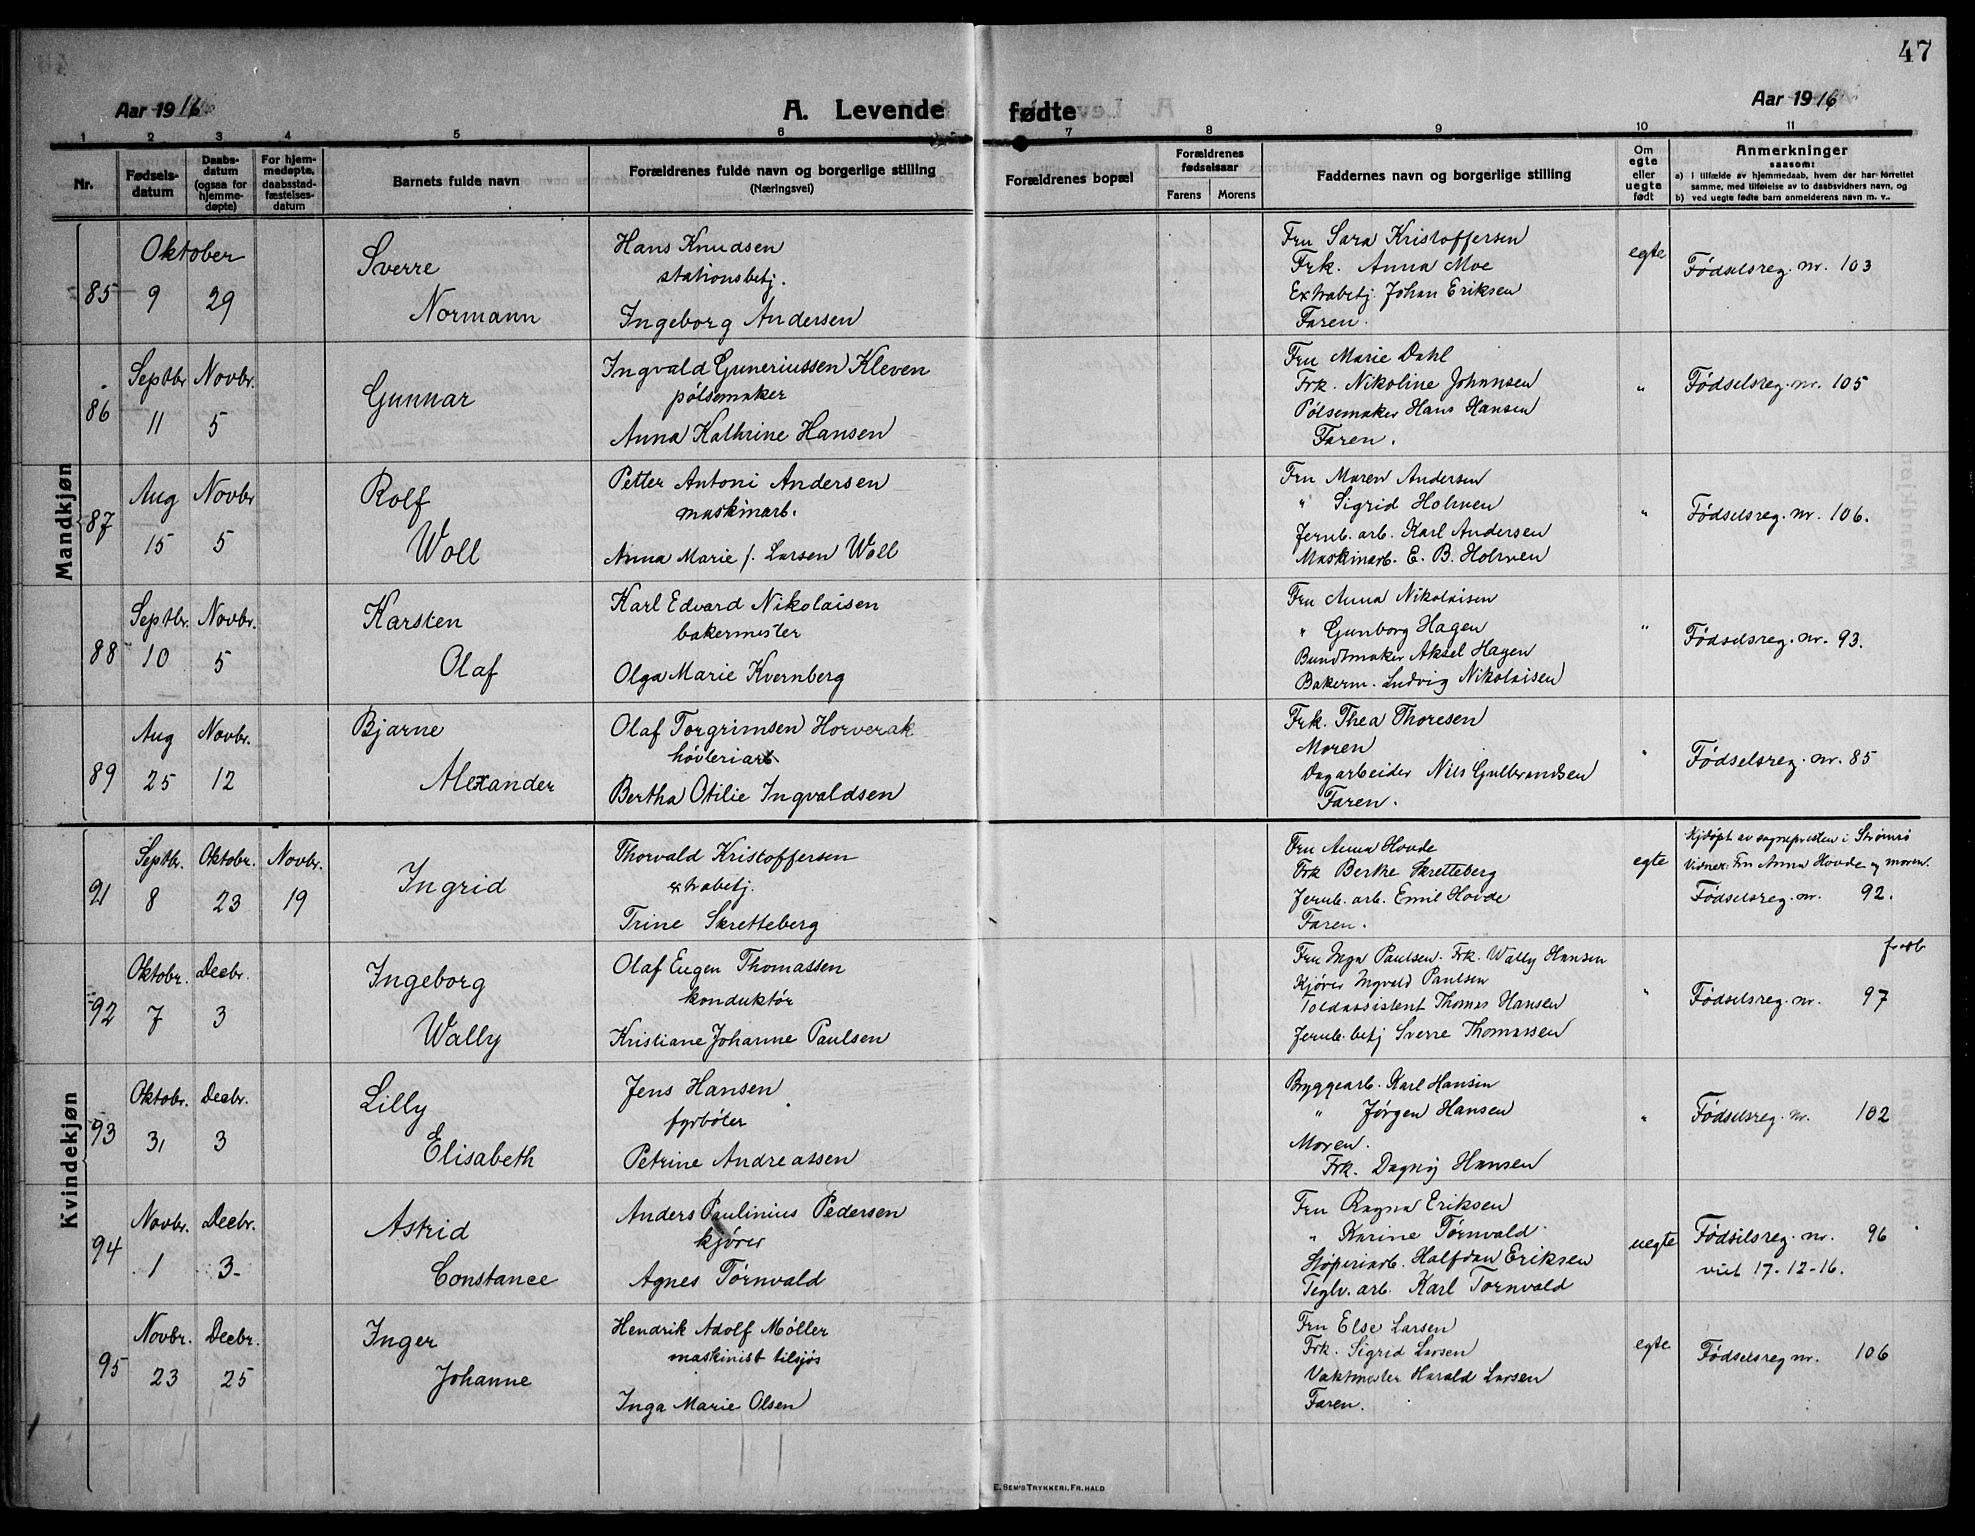 47
Aar 1916
A. Levende fødte
Aar 1916
1 2 3 4 5 6 7 8 9 10 11
Nr.
Fødsels-
datum
Daabs-
datum
(ogsaa for
hjemme-
døpte)
For hjem-
medøpte,
daabsstad-
fæstelses-
datum
Barnets fulde navn
Forældrenes fulde navn og borgerlige stilling
(Næringsvei)
Forældrenes bopæl
Forældrenes
fødselsaar
Farens Morens
Faddernes navn og borgerlige stilling
Om
egte
eller
uegte
født
Anmerkninger
saasom:
a) I tilfælde av hjemmedaab, hvem der har forrettet
samme, med tilføielse av to daabsvidners navn, og
b) ved uegte fødte barn anmelderens navn m. v..
Mandkjøn
85
Oktober
9 29
Sverre
Normann
Hans Knudsen
stationsbetj.
Ingeborg Andersen
Fru Sara Kristoffersen
Frk. Anna Moe
Extrabetj. Johan Eriksen
Faren.
egte
Fødselsreg. nr. 103
86
Septbr. Novbr.
11 5
Gunnar
Ingvald Guneriussen Kleven
pølsemaker
Anna Kathrine Hansen
Fru Marie Dahl
Frk. Nikoline Johansen
Pølsemaker Hans Hansen
Faren.
"
Fødselsreg. nr. 105
87
Aug Novbr
15 5
Rolf
Woll
Petter Antoni Andersen
maskinarb.
Anna Marie f. Larsen Woll
Fru Maren Andersen
" Sigrid Holmen
Jernb. arb. Karl Andersen
Maskinarb. E. B. Holmen
"
Fødselsreg. nr. 106.
88
Septbr. Novbr.
10 5
Karsten
Olaf
Karl Edvard Nikolaisen
bakermester
Olga Marie Kvernberg
Fru Anna Nikolaisen
" Gunborg Hagen
Buntmaker Aksel Hagen
Bakerm. Ludvig Nikolaisen
"
Fødselsreg. nr. 93.
89
Aug Novbr.
25 12
Bjarne
Alexander
Olaf Torgrimsen Horverak
høvleriarb
Bertha Otilie Ingvaldsen
Frk. Thea Thoresen
Moren
Dagarbeider Nils Gulbrandsen
Faren.
"
Fødselsreg. nr. 85
Kvindekjøn
91
Septbr. Oktobr. Novbr.
8 23 19
Ingrid
Thorvald Kristoffersen
extrabetj.
Trine Skretteberg
Fru Anna Hovde
Frk Berthe Skretteberg
Jernb. arb. Emil Hovde
Faren.
egte
Hjdøpt av sognepresten i Strømsø
Vidner: Fru Anna Hovde og moren.
Fødselsreg. nr. 92.
92
Oktobr. Decbr.
7 3
Ingeborg
Wally
Olaf Eugen Thomassen
konduktør
Kristiane Johanne Paulsen
Fru Inga Paulsen. Frk. Wally Hansen
Kjører Ingvald Paulsen
Toldassistent Thomas Hansen
Jernb. betj Sverre Thomassen
"
Fødselsreg. nr. 97
93
Oktobr. Decbr.
31 3
Lilly
Elisabeth
Jens Hansen
fyrbøter
Petrine Andreassen
Byggearb. Karl Hansen
" Jørgen Hansen
Moren.
Frk. Dagny Hansen
"
Fødselsreg. nr. 102
94
Novbr. Decbr.
1 3
Astrid
Constance
Anders Paulinius Pedersen
kjører
Agnes Tørnvald
Fru Ragna Eriksen
" Karine Tørnvald
Støperiarb. Halfdan Eriksen
Teglv. arb. Karl Tørnvald
uegte
Fødselsreg. nr. 96
viet 17-12-16.
95
Novbr. Decbr.
23 25
Inger
Johanne
Hendrik Adolf Møller
maskinist tilsjøs
Inga Marie Olsen
Fru Else Larsen
Frk. Sigrid Larsen
Vaktmester Harald Larsen
Faren.
egte
Fødselsreg nr. 106
E. SEM'S TRYKKERI, FR. HALD